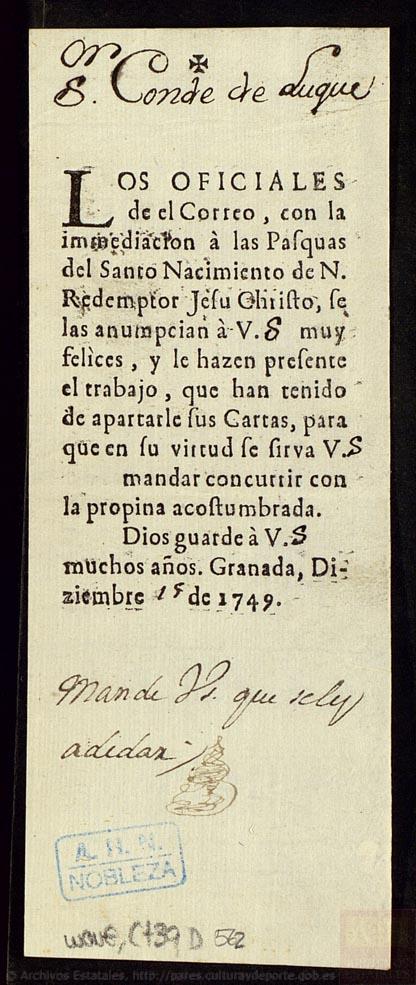 Sr.
✠
S. Conde de Luque
LOS OFICIALES
de el Correo, con la
immediacion à las Pasquas
del Santo Nacimiento de N.
Redemptor Jesu Christo, se
las anumpcian à V.S muy
felices, y le hazen presente
el trabajo, que han tenido
de apartarle sus Cartas, para
que en su virtud se sirva V.S
mandar concurrir con
la propina acostumbrada.
Dios guarde à V.S
muchos años. Granada, Di-
ziembre 15 de 1749.
Mande VS. que se les
a de dar
A. H. N.
NOBLEZA
C 139 D 562
© Archivos Estatales, http://pares.culturaydeporte.gob.es